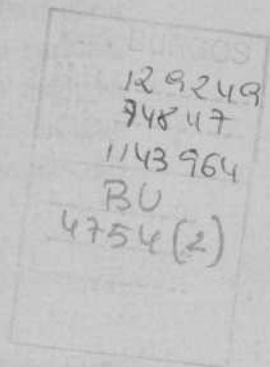 BURGOS
129249
94847
1143964
BU
4754 (2)